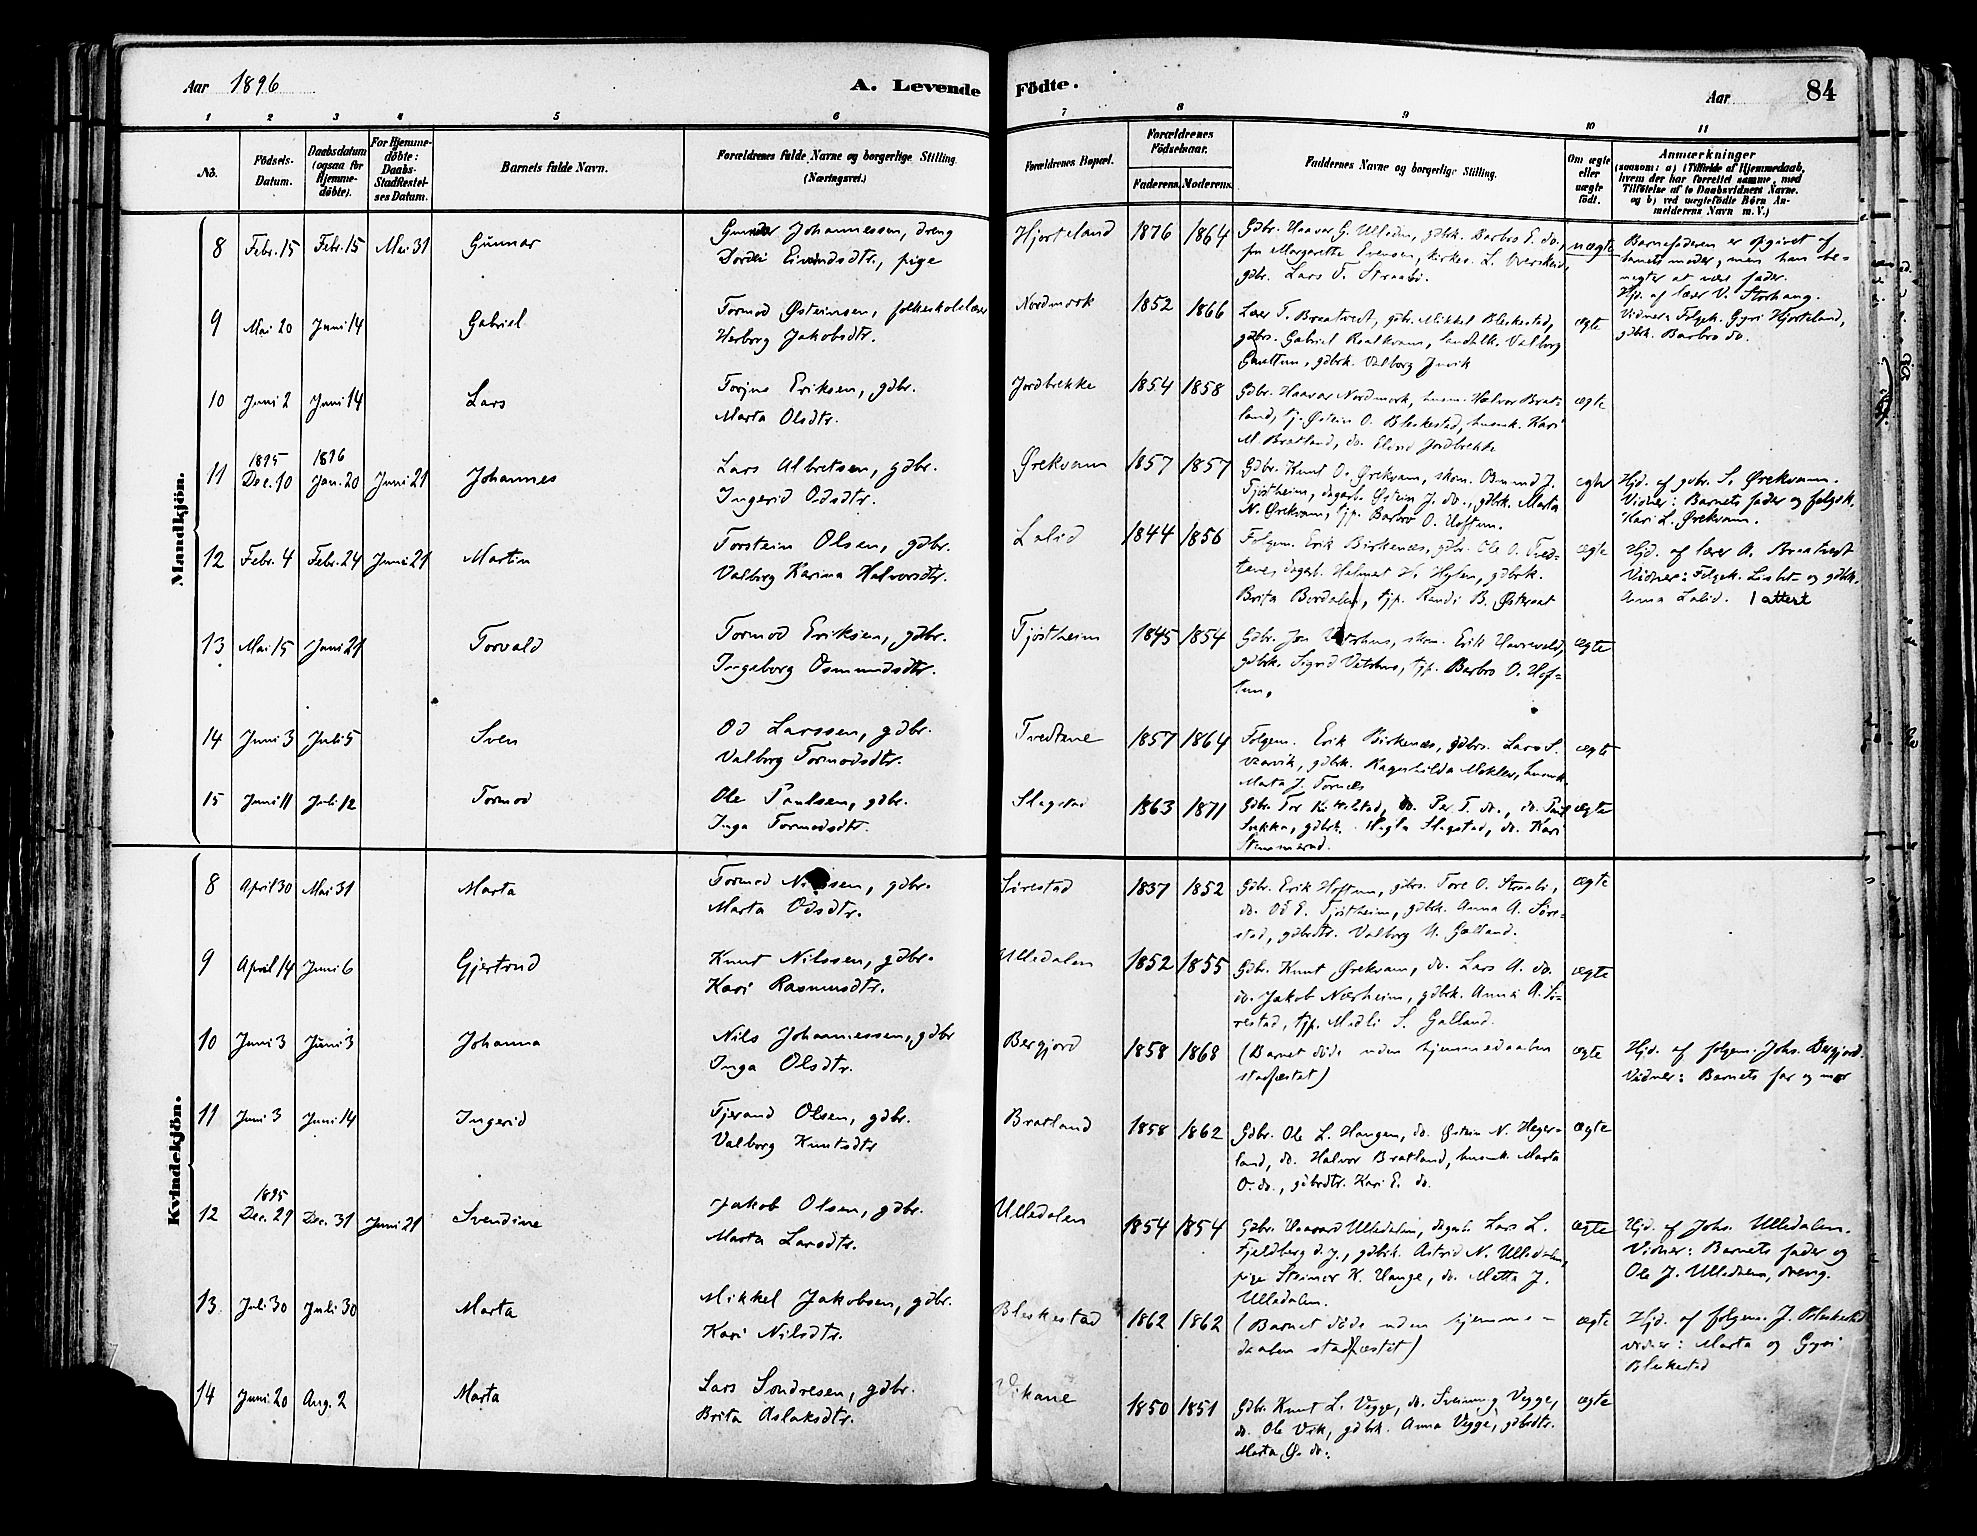 Aar 1896
A. Levende Födte.
Aar
84
1 2 3 4 5 6 7 8 9 10 11
No.
Födsels-Datum.
Daabsdatum (ogsaa for Hjemme-döbte).
For Hjemme-döbte: Daabs-Stadfæstel-ses Datum.
Barnets fulde Navn.
Forældrenes fulde Navne og borgerlige Stilling. (Næringsvei.)
Forældrenes Bopæl.
Forældrenes Födselsaar.
Faderens. Moderens.
Faddernes Navne og borgerlige Stilling.
Om ægte eller uægte födt.
Anmærkninger
(saasom: a) i Tilfælde af Hjemmedaab, hvem der har forrettet samme, med Tilföielse af to Daabsvidners Navne, og b) ved uægtefödte Börn An-melderens Navn m. V.)
Mandkjön.
8 Febr. 15 Febr. 15 Mai 31 Gunnar
Gunnar Johannessen, dreng
Dordei Eivindsdtr., pige
Hjorteland 1876 1864
Gdbr. Haavar G. Ulledn, gdbk. Barbro E. do.,
fru Margrethe Evensen, kirkes. L. Overskeid,
gdbr. Lars T. Straabö.
uægte
Barnefaderen er opgivet af
barnets moder, men han be-
negter at være fader.
Hjd. af lærer V. Storhaug.
Vidner: Følgek. Gyri Hjorteland,
gdbk. Barbro do.
9 Mai 20 Juni 14 Gabriel
Tormod Østeinsen, folkeskolelærer
Herborg Jakobsdtr.
Nordmork 1852 1866
Lærer T. Braatvedt, gdbr. Mikkel Bleskestad,
gdbrs. Gabriel Roalkvam, landhlk. Valborg
Guettum, gdbrk. Valborg Juvik
ægte
10 Juni 2 Juni 14 Lars
Torjus Eriksen, gdbr.
Marta Olsdtr.
Jordbrekke 1854 1858
Gdbr. Haavar Nordmork, husm. Halvor Brat-
land, tj. Østein O. Bleskestad, husmk. Kari
M. Bratland, do. Eline Jordbrekke
ægte
11 1895 Dec. 10 1896 Jan. 20 Juni 21 Johannes
Lars Albretsen, gdbr.
Ingerid Odsdtr.
Ørekvam 1857 1857
Gdbr. Knut O. Ørekvam, skom. Omund J.
Tjøstheim, dagarb. Østein J. do., gdbk. Marta
N. Ørekvam, tjp. Barbro O. Hoftun.
egte
Hjd. af gdbr. S. Ørekvam.
Vidner: Barnets fader og følgek.
Kari L. Ørekvam.
12 Febr. 4 Febr. 24 Juni 21 Martin
Torstein Olsen, gdbr.
Valborg Karina Halvorsdtr.
Lalid 1844 1856
Folgem. Erik Birkenæs, gdbr. Ole O. Tved-
tene, dagarb. Helmat H. Hylen, gdbrk.
Brita Birdalen, tjp. Randi B. Østeraat
ægte
Hjd. af lærer A. Braatvedt
Vidner: Følgek. Lisbet og gdbk.
Anna Lalid. 1 attest
13 Mai 15 Juni 21 Torvald
Tormod Eriksen, gdbr.
Ingeborg Osmundsdtr.
Tjøstheim 1845 1854
Gdbr. Jon Vetrhus, skom. Erik Havrevold,
gdbrk. Sigrid Vetrhus, tjp. Barbro O. Hof-
tun.
ægte
14 Juni 3 Juli 5 Sven
Od Larssen, gdbr.
Valborg Tormodsdtr.
Tvedtene 1857 1864
Folgem. Erik Birkenæs, gdbrs. Lars S.
, gdbrk. Ragnhilda Mokleiv, husmk.
Marta J. Tornæs
ægte
15 Juni 11 Juli 12 Tormod
Ole Paulsen, gdbr.
Inga Tormodsdtr.
Slegstad 1863 1871
Gdbr. Tor Kvælstad, do. Per T. do., do. Paul
Sukka, gdbrk. Helga Slegstad, do. Kari
.
ægte
Kvindekjön.
8 April 30 Mai 31 Marta
Tormod Nilssen, gdbr.
Marta Odsdtr.
Sørestad 1837 1852
Gdbr. Erik Hoftun, gdbrs. Tore O. Straabö,
do. Od E. Tjøstheim, gdbrk. Anna A. Søre-
stad, gdbrdtr. Valborg N. Galland.
ægte
9 April 14 Juni 6 Gjertrud
Knut Nilssen, gdbr.
Kari Rasmusdtr.
Ulledalen 1852 1855
Gdbr. Knut Ørekvam, do. Lars A. do.
do. Jakob Nærheim, gdbrk. Anna A. Sø-
restad, tjp. Medli S. Galland.
ægte
10 Juni 3 Juni 3 Johanna
Nils Johannessen, gdbr
Inga Olsdtr.
Bergjord 1858 1868
(Barnet døde uden hjemmedaaben
stadfæstet)
ægte
Hjd. af folgem. Johs. Bergjord.
Vidner: Barnets far og mor
11 Juni 3 Juni 14 Ingerid
Tjerand Olsen, gdbr.
Valborg Knutsdtr
Bratland 1858 1862
Gdbr. Ole L. Haugen, do. Østein N. Heger-
land, do. Halvor Bratland, husmk. Marta
O. do., gdbrdtr. Kari E. do.
ægte
12 1895 Dec. 29 Dec. 31 Juni 21 Svendine
Jakob Olsen, gdbr.
Marta Larsdtr.
Ulledalen 1854 1854
Gdbr. Haavard Ulledalen, dagarb. Lars L.
Fjeldberg d.y., gdbrk. Astrid N. Ulledalen,
pige Steinvor K. Hauge, do. Metta J.
Ulledalen.
ægte
Hjd. af Johs. Ulledalen.
Vidner: Barnets fader og
Ole J. Ulledalen, dreng.
13 Juli 30 Juli 30 Marta
Mikkel Jakobsen, gdbr.
Kari Nilsdtr.
Bleskestad 1862 1862
(Barnet døde uden hjemme-
daaben stadfæstet)
ægte
Hjd. af folgem. J. Bleskestad
vidner: Marta og Gyri
Bleskestad
14 Juni 20 Aug. 2 Marta
Lars Sondresen, gdbr.
Brita Aslaksdtr.
Vikane 1850 1851
Gdbr. Knut L. Vegge, do. Sveinung Vegge,
do. Ole Vik, gdbrk. Anna Vegge, gdbrdtr.
Marta Ø. do.
ægte